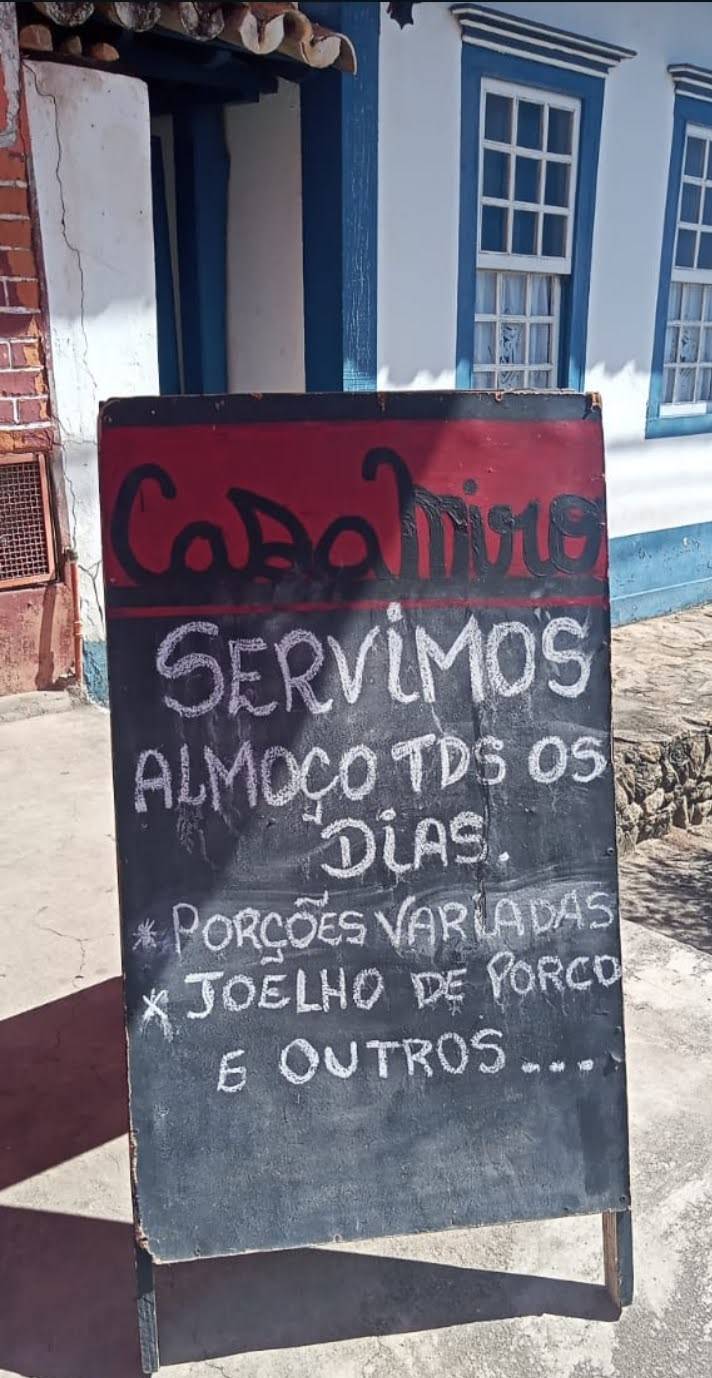 Casa Miro
SERViMOS
ALMOÇO TDS OS
DiAS.
* PORÇÕES VARIADAS
* JOELHO DE PORCO
E OUTROS...